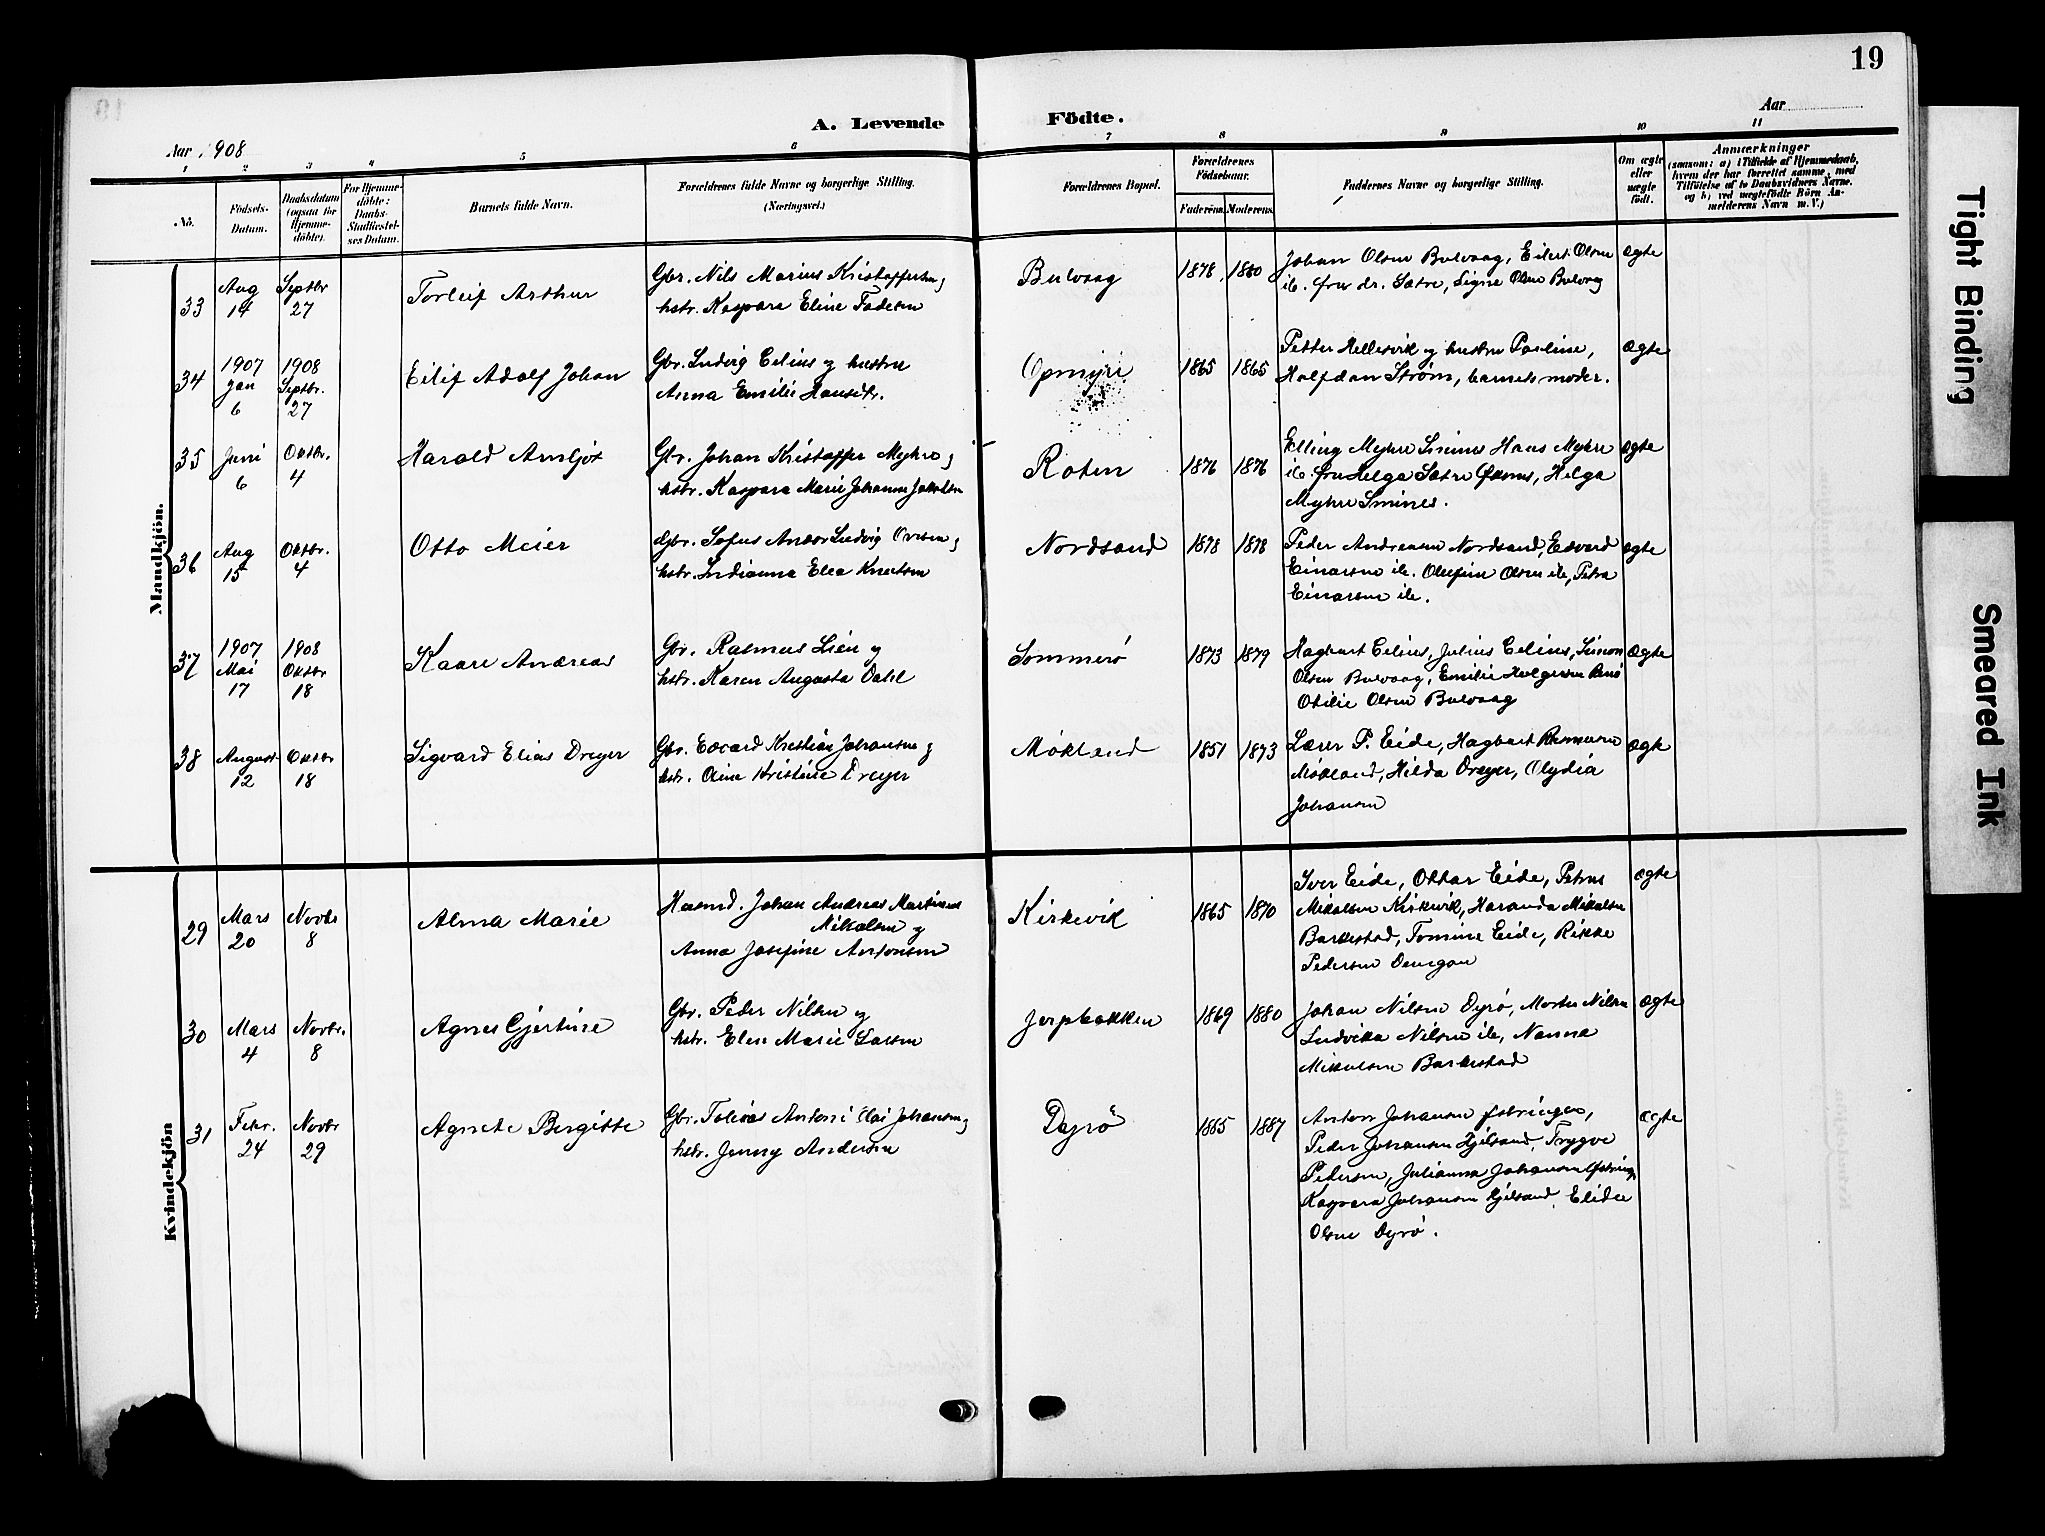 19
A. Levende Födte.
Aar 1908
Aar
1 2 3 4 5 6 7 8 9 10 11
No.
Födsels-Datum.
Daabsdatum (ogsaa for Hjemmedöbte).
For Hjemmedöbte: Daabs-Stadfæstelses Datum.
Barnets fulde Navn.
Forældrenes fulde Navne og borgerlige Stilling. (Næringsvei.)
Forældrenes Bopæl.
Forældrenes Födselsaar.
Faderens. Moderens.
Faddernes Navne og borgerlige Stilling.
Om ægte eller uægte födt.
Anmærkninger
(saasom: a) i Tilfælde af Hjemmedaab, hvem der har forrettet samme, med Tilföielse af to Daabsvidners Navne, og b) ved uægtefödte Börn Anmelderens Navn m. V.)
Mandkjön.
33 Aug 14 Septbr 27 Torleif Arthur
Gbr. Nils Marius Kristoffersen og
hstr. Kaspara Eline Tadesen
Bulvaag 1878 1880
Johan Olsen Bulvaag, Eilert Olsen
ib. fru dr. Sætre, Signe Olsen Bulvaag
ægte
34 1907 Jan 6 1908 Septbr. 27 Eilif Adolf Johan
Gbr. Ludvig Eelius og hustru
Anna Emilie Hansdtr.
Opmyre 1865 1865
Petter Hellesvik og hustru Pauline,
Halfdan Strøm, barnets moder.
ægte
35 Juni 6 Oktbr. 4 Harald Arnljot
Gbr. Johan Kristoffer Myhre og
hstr. Kaspara Marie Johanna Jakobsen
Roten 1876 1876
Elling Myhre Smines Hans Myhre
ib. fru Helga Sætre Øksnes, Helga
Myhre Smines.
ægte
36 Aug 15 Oktbr. 4 Otto Meier
Gbr. Sofus Anton Ludvig Ovesen og
hstr. Indianna Elea Knutsen
Nordsand 1878 1878
Peder Andreasen Nordsand, Edvard
Einarsen ib. Olufine Olsen ib, Petra
Einarsen ib.
ægte
37 1907 Mai 17 1908 Oktbr 18 Kaare Andreas
Gbr. Rasmus Lien og
hstr. Karen Augusta Dahl
Sommerø 1873 1879
Hagbart Eelius, Julius Eelius, Simon
Olsen Bulvaag, Emilie Holgersen
Otilie Olsen Bulvaag
ægte
38 August 12 Oktbr 18 Sigvard Elias Dreyer
Gbr. Edvard Kristian Johansen og
hstr. Oline Kristine Dreyer
Møkland 1851 1873
Lærer P. Eide, Hagbart Rasmussen
Møkland, Hilda Dreyer, Olydia
Johansen
ægte
Kvindekjön
29 Mars 20 Novbr 8 Alma Marie
Husmd. Johan Andreas Martinus
Mikalsen og
Anna Josefine Antonsen
Kirkevik 1865 1870
Iver Eide, Ottar Eide, Petrus
Mikalsen Kirkvik, Haranda Mikalsen
Barkestad, Tomine Eide, Rikke
Pedersen
ægte
30 Mars 4 Novbr. 8 Agnes Gjertine
Gbr. Peder Nilsen og
hstr. Elen Marie Larsen
Jerpbakken 1869 1880
Johan Nilsen Dyrø, Morten Nilsen
Ludvikka Nilsen ib, Nanna
Mikalsen Barkestad
ægte
31 Febr. 24 Novbr 29 Agnete Birgitte
Gbr. Tobias Antoni Elai Johansen og
hstr. Jenny Andersen
Dyrø 1865 1887
Anton Johansen
Peder Johansen Gjelsand, Trygve
Pedersen, Julianna Johansen
Kaspara Johansen Gjelsand, Elida
Olsen Dyrø.
ægte
Tight Binding
Smeared Ink